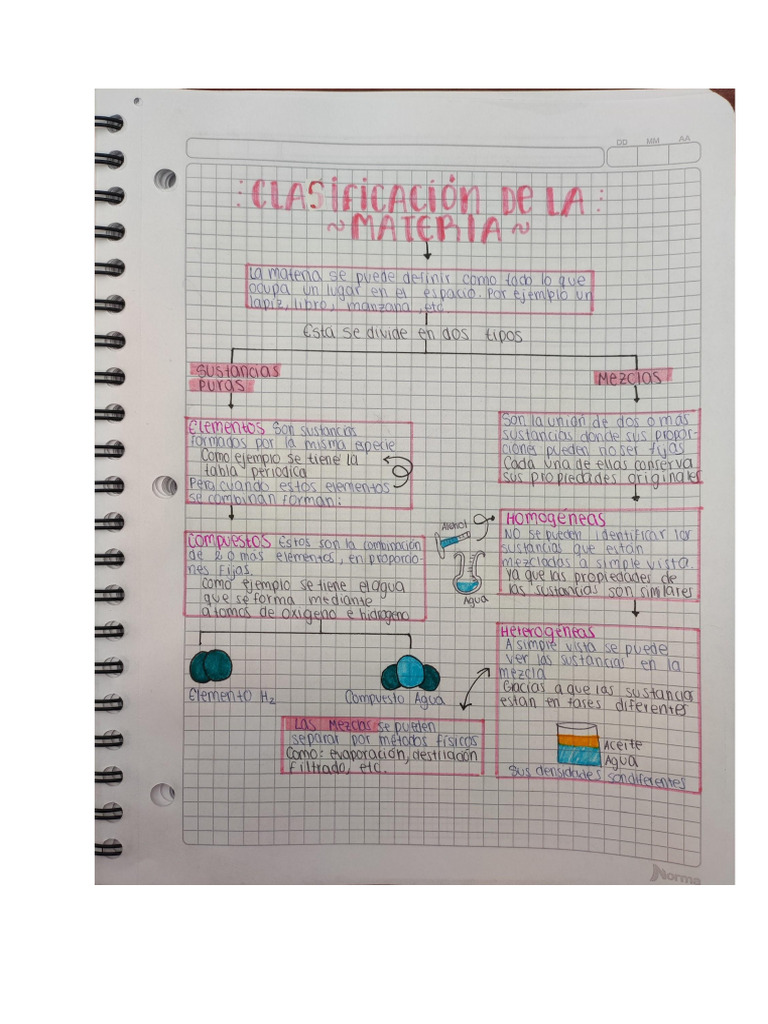 DD MM AA
: CLASIFICACIÓN DE LA :
~ MATERIA ~
La materia se puede definir como todo lo que
ocupa un lugar en el espacio. Por ejemplo un
lapiz, libro, manzana, etc.
Esta se divide en dos tipos
Sustancias
puras
Elementos Son sustancias
formados por la misma especie
Como ejemplo se tiene la
tabla periodica
Pero cuando estos elementos
se combinan forman:
Compuestos Estos son la combinación
de 2 o más elementos, en proporcio-
nes fijas.
Como ejemplo se tiene el agua
que se forma mediante
atomos de oxigeno e hidrogeno
Elemento H₂
Compuesto Agua
Mezclas
Son la unión de dos o más
sustancias donde sus propor-
ciones pueden no ser fijas
Cada una de ellas conserva
sus propiedades originales
Homogéneas
No se pueden identificar las
sustancias que están
mezcladas a simple vista.
Ya que las propiedades de
las sustancias son similares
Alcohol
Agua
Heterogéneas
A simple vista se puede
ver las sustancias en la
mezcla
Gracias a que las sustancias
están en fases diferentes
Aceite
Agua
Sus densidades son diferentes
Las Mezclas se pueden
separar por métodos físicos
Como: evaporación, destilación
Filtrado, etc.
Norma